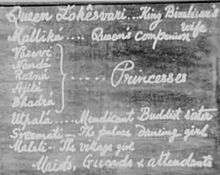 Queen Lokêsvari ... King Bimbisar's
wife
Mallika .... Queen's Companion
Vasavi
Nandá
Ratná
Ajitá
Bhadrá
Princesses
Utpalá ... Mendicant Buddist sister
Sreemati ... The palace dancing girl
Malati ... The village girl
Maids, Guards & attendants